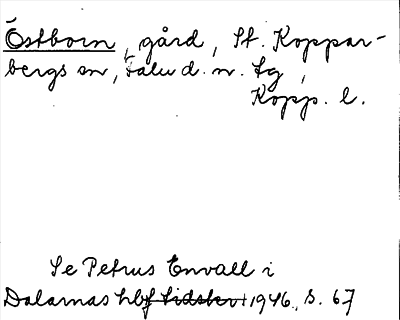 Östborn, gård, St. Koppar-
bergs sn, Falu d. n. tg,
Kopp. l.
Se Petrus Envall i
Dalarnas hbf tidskr 1946, s. 67